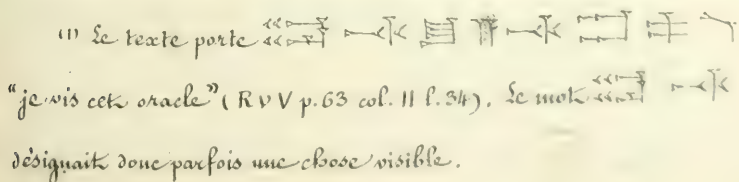 (1) Le texte porte
"je vis cet oracle" (R V V p. 63 col. II l. 34). Le mot
désignait donc parfois une chose visible.